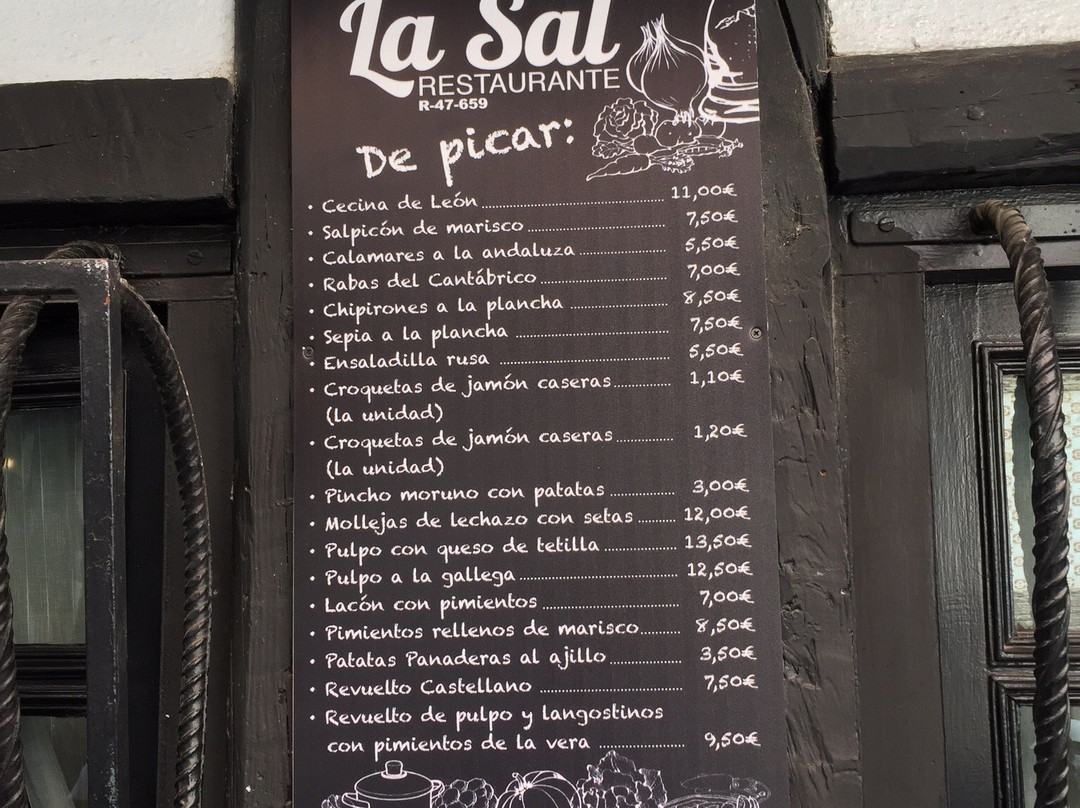 La Sal
RESTAURANTE
R-47-659
De picar:
· Cecina de León........................................ 11,00€
· Salpicón de marisco.............................. 7,50€
· Calamares a la andaluza ................... 5,50€
· Rabas del Cantábrico............................ 7,00€
· Chipirones a la plancha ..................... 8,50€
· Sepia a la plancha ................................. 7,50€
· Ensaladilla rusa .................................... 5,50€
· Croquetas de jamón caseras............ 1,10€
(la unidad)
· Croquetas de jamón caseras............ 1,20€
(la unidad)
· Pincho moruno con patatas ............. 3,00€
· Mollejas de lechazo con setas ........ 12,00€
· Pulpo con queso de tetilla ................ 13,50€
· Pulpo a la gallega ................................. 12,50€
· Lacón con pimientos ............................. 7,00€
· Pimientos rellenos de marisco......... 8,50€
· Patatas Panaderas al ajillo .............. 3,50€
· Revuelto Castellano .............................. 7,50€
· Revuelto de pulpo y langostinos
con pimientos de la vera .................. 9,50€